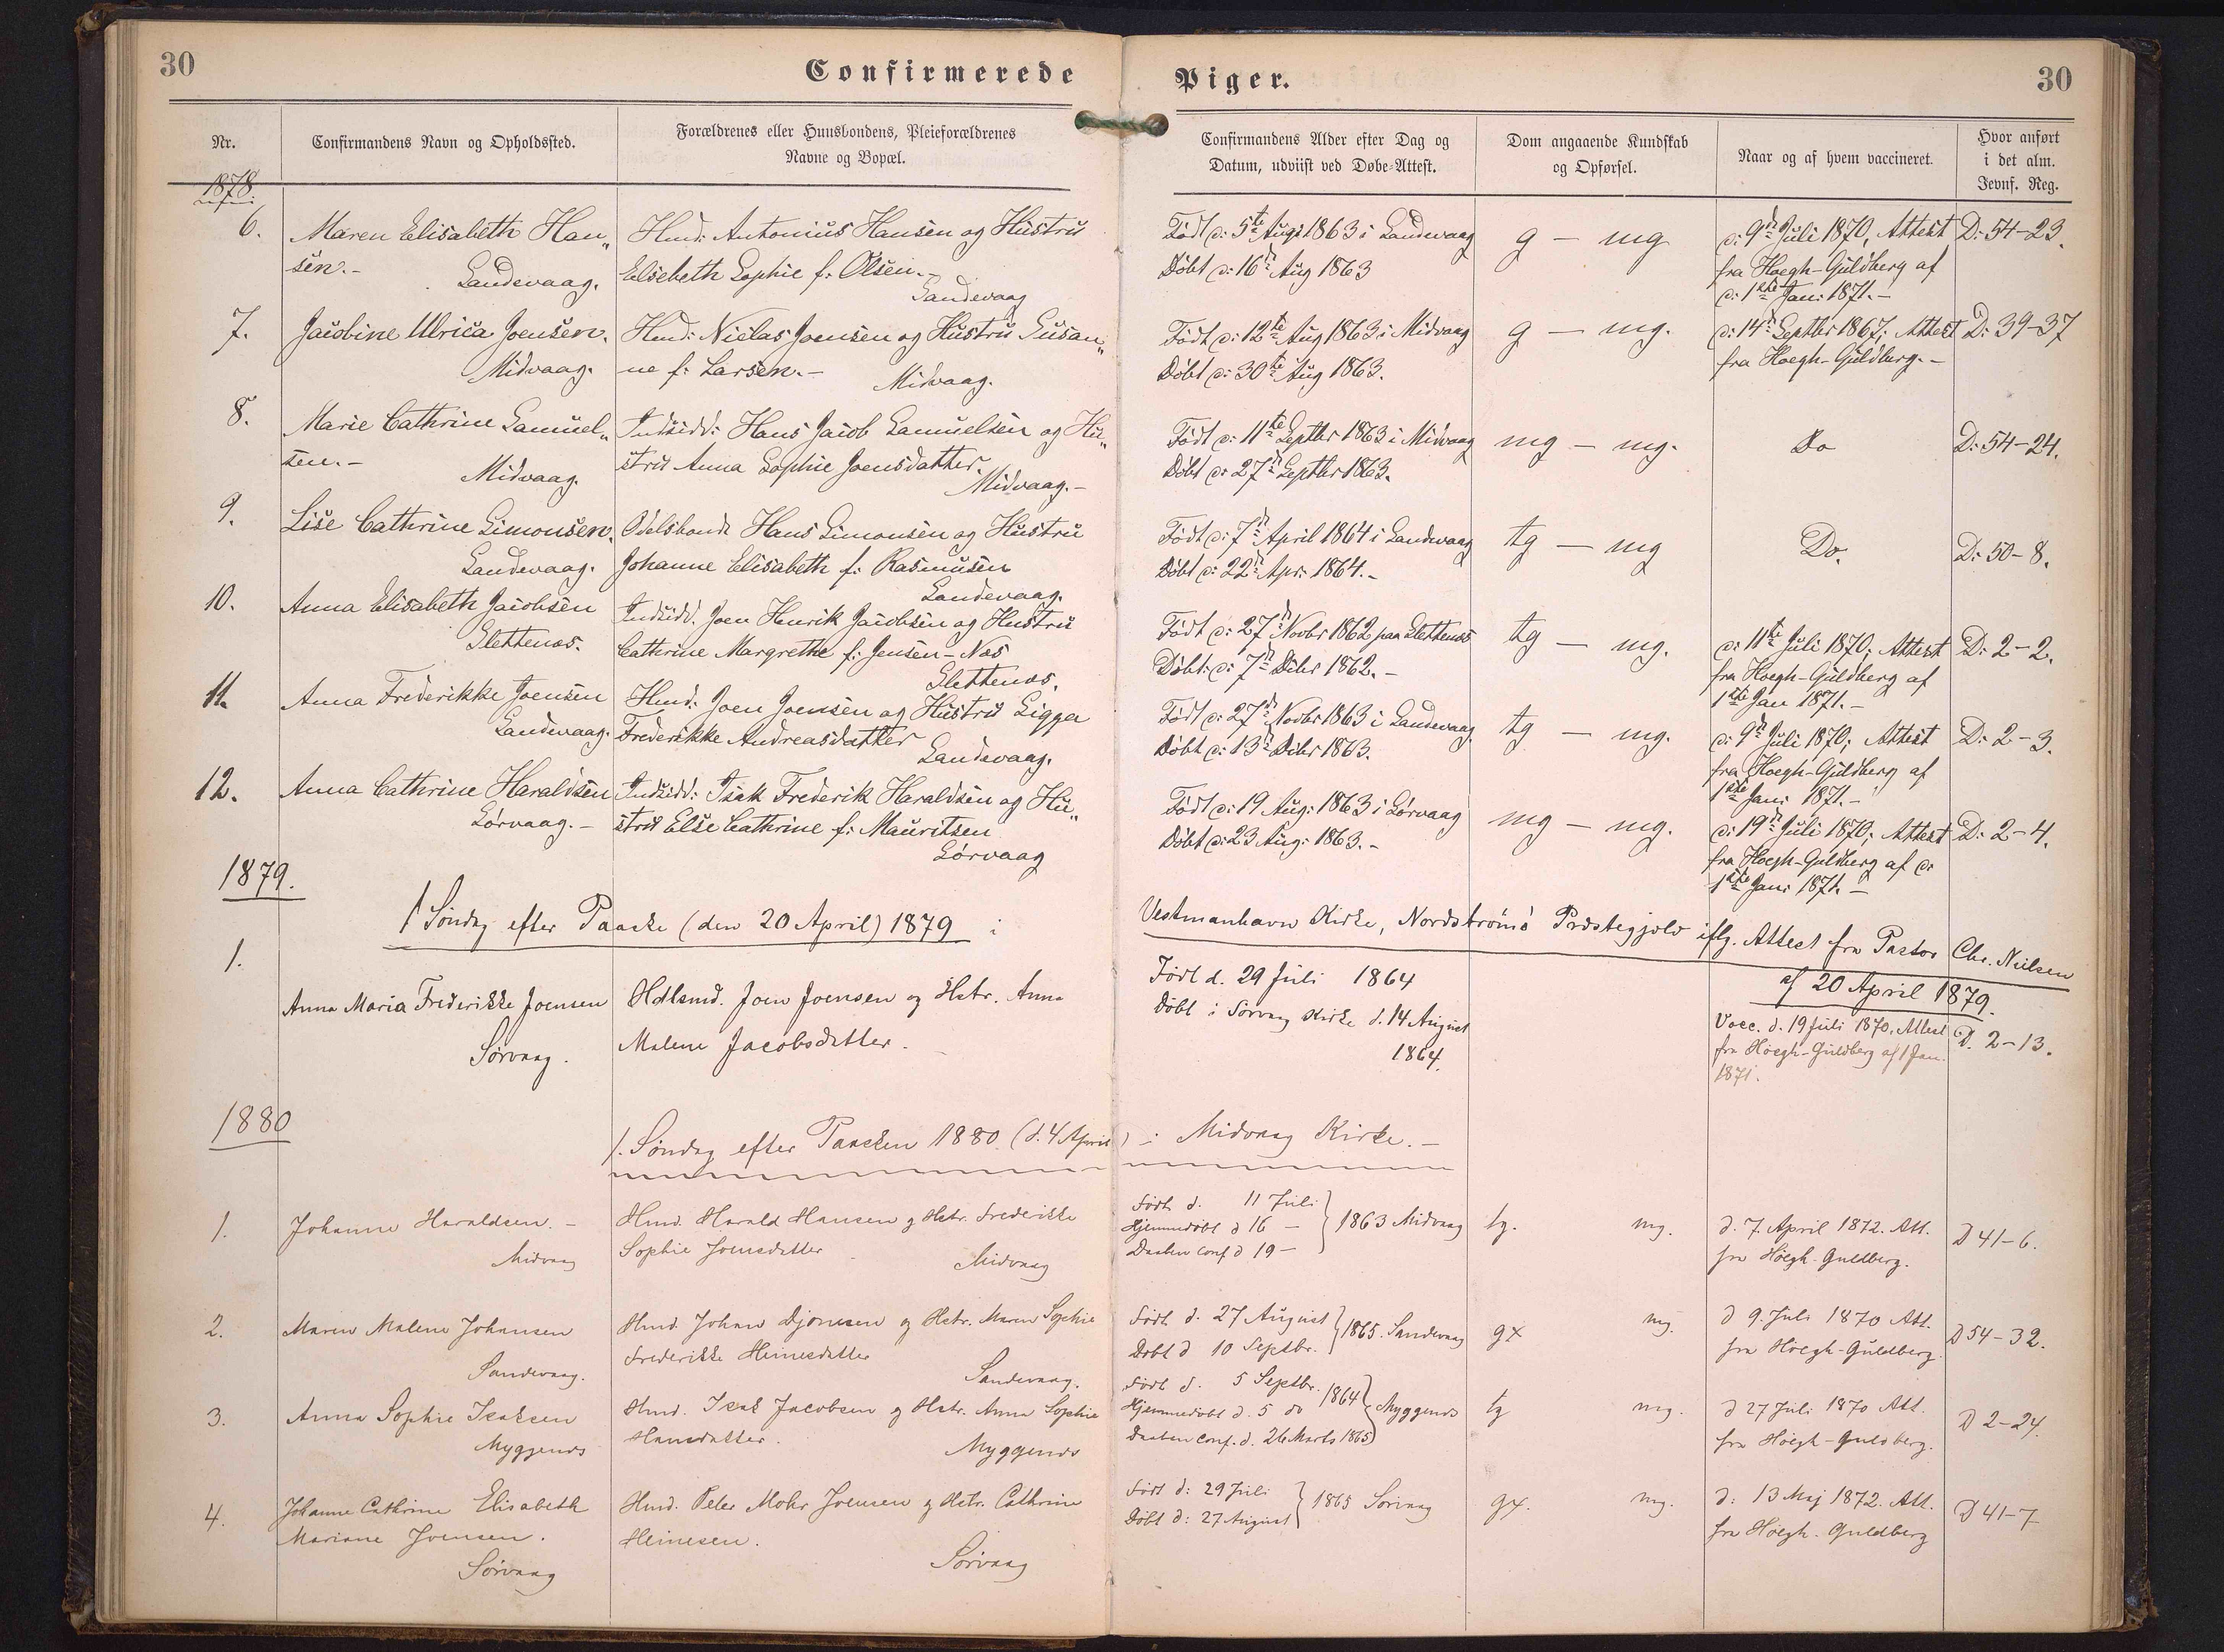 30
Confirmerede
Piger.
30
Nr.
Confirmandens Navn og Opholdssted.
Forældrenes eller Huusbondens, Pleieforældrenes
Navne og Bopæl.
Confirmandens Alder efter Dag og
Datum, udviist ved Døbe-Attest.
Dom angaaende Kundskab
og Opførsel.
Naar og af hvem vaccineret.
Hvor anført
i det alm.
Jevnf. Reg.
1878
6.
Maren Elisabeth Han„
sen.-
Sandevaag.
Hmd: Antonius Hansen og Hustru
Elsebeth Sophie f: Olsen.-
Sandevaag
Født d: 5te Aug: 1863 i Sandevaag
Døbt d: 16d Aug 1863
g - mg
d: 9d Juli 1870, Attest
fra Hoegh-Guldberg af
d: 1ste Jan: 1871.-
D: 54-23.
7.
Jacobine Ulrica Joensen.
Midvaag.
Hmd: Niclas Joensen og Hustru Susan„
ne f: Larsen.-
Midvaag.
Født d: 12te Aug 1863 i Midvaag
Døbt d: 30te Aug 1863.
g - mg.
d: 14d Septbr 1867; Attest
fra Hoegh-Guldberg.-
D: 39-37
8.
Marie Cathrine Samuel„
sen.-
Midvaag.
Indsidd: Hans Jacob Samuelsen og Hu„
stru Anna Sophie Joensdatter.
Midvaag.-
Født d: 11te Septbr 1863 i Midvaag
Døbt d: 27d Septbr 1863.
mg - mg.
Do
D: 54-24.
9.
Lise Cathrine Simonsen.
Sandevaag.
Odelsbonde Hans Simonsen og Hustru
Johanne Elisabeth f: Rasmusen
Sandevaag.
Født d: 7d April 1864 i Sandevaag
Døbt d: 22d Apr: 1864.-
tg - mg
Do.
D: 50-8.
10.
Anna Elisabeth Jacobsen
Slettenæs.
Indsidd. Joen Henrik Jacobsen og Hustru
Cathrine Margrethe f: Jensen-Næs
Slettenæs.
Født d: 27d Novbr 1862 paa Slettenæs
Døbt: d: 7d Debr 1862.-
tg - mg.
d: 11te Juli 1870; Attest
fra Hoegh-Guldberg af
1ste Jan 1871.-
D: 2-2.
11.
Anna Frederikke Joensen
Sandevaag.
Hmd: Joen Joensen og Hustru Sigga
Frederikke Andreasdatter
Sandevaag.
Født d: 27d Novbr 1863 i Sandevaag.
Døbt d: 13d Debr 1863.
tg - mg.
d: 9d Juli 1870; Attest
fra Hoegh-Guldberg af
1ste Jan: 1871.-
D: 2-3.
12.
Anna Cathrine Haraldsen
Sørvaag.-
Indsidd: Isak Frederik Haraldsen og Hu„
stru Else Cathrine f: Mauritsen
Sørvaag
Født d: 19 Aug: 1863 i Sørvaag
Døbt d: 23 Aug: 1863.-
mg - mg.
d: 19d Juli 1870; Attest
fra Hoegh-Guldberg af d:
1ste Jan: 1871.-
D: 2-4.
1879.
1 Søndag efter Paaske (den 20 April) 1879 i
Vestmanhavn Kirke, Nordstrømø Præstegjeld iflg. Attest fra Pastor Chr. Nielsen
af 20 April 1879.
1.
Anna Maria Frederikke Joensen
Sørvaag.
Joen Joensen og Hstr. Anna
Malene Jacobsdatter.
Født d. 29 Juli 1864
Døbt i Sørvaag Kirke d. 14 August
1864.
Vacc. d. 19 Juli 1870, Attest
fra Höegh-Guldberg af 1 Jan.
1871.
D. 2-13.
1880
1. Søndag efter Paasken 1880. (d. 4 April) i Midvaag Kirke.-
1.
Johanne Haraldsen.-
Midvaag
Hmd. Harald Hansen og Hstr. Frederikke
Sophie Joensdatter
Midvaag
Født d. 11 Juli
Hjemmedøbt d 16 -
Daaben conf d 19 -
1863 Midvaag
tg. mg.
d. 7. April 1872. Att.
fra Höegh-Guldberg.
D 41-6.
2.
Maren Malene Johansen
Sandevaag.
Hmd. Johan Djonesen og Hstr. Maren Sophie
Frederikke Heinesdatter
Sandevaag.
Født d. 27 August
Døbt d 10 Septbr.
1865. Sandevaag
gx mg.
d 9. Juli 1870 Att.
fra Höegh-Guldberg.
D 54-32.
3.
Anna Sophie Isaksen
Myggenæs
Hmd. Isak Jacobsen og Hstr. Anna Sophie
Hansdatter.
Myggenæs
Født d. 5 Septbr.
Hjemmedøbt d. 5 do
1864
Daaben conf. d. 26 Marts 1865
Myggenæs
tg mg.
d 27 Juli 1870 Att.
fra Höegh-Guldberg.
D 2-24.
4.
Johanne Cathrine Elisabeth
Mariane Joensen.
Sørvaag
Hmd. Peter Mohr Joensen og Hstr. Cathrine
Heinesen.
Sørvaag
Født d: 29 Juli
Døbt d: 27 August
1865 Sørvaag
gx. mg.
d: 13 Maj 1872. Att.
fra Höegh-Guldberg
D 41-7